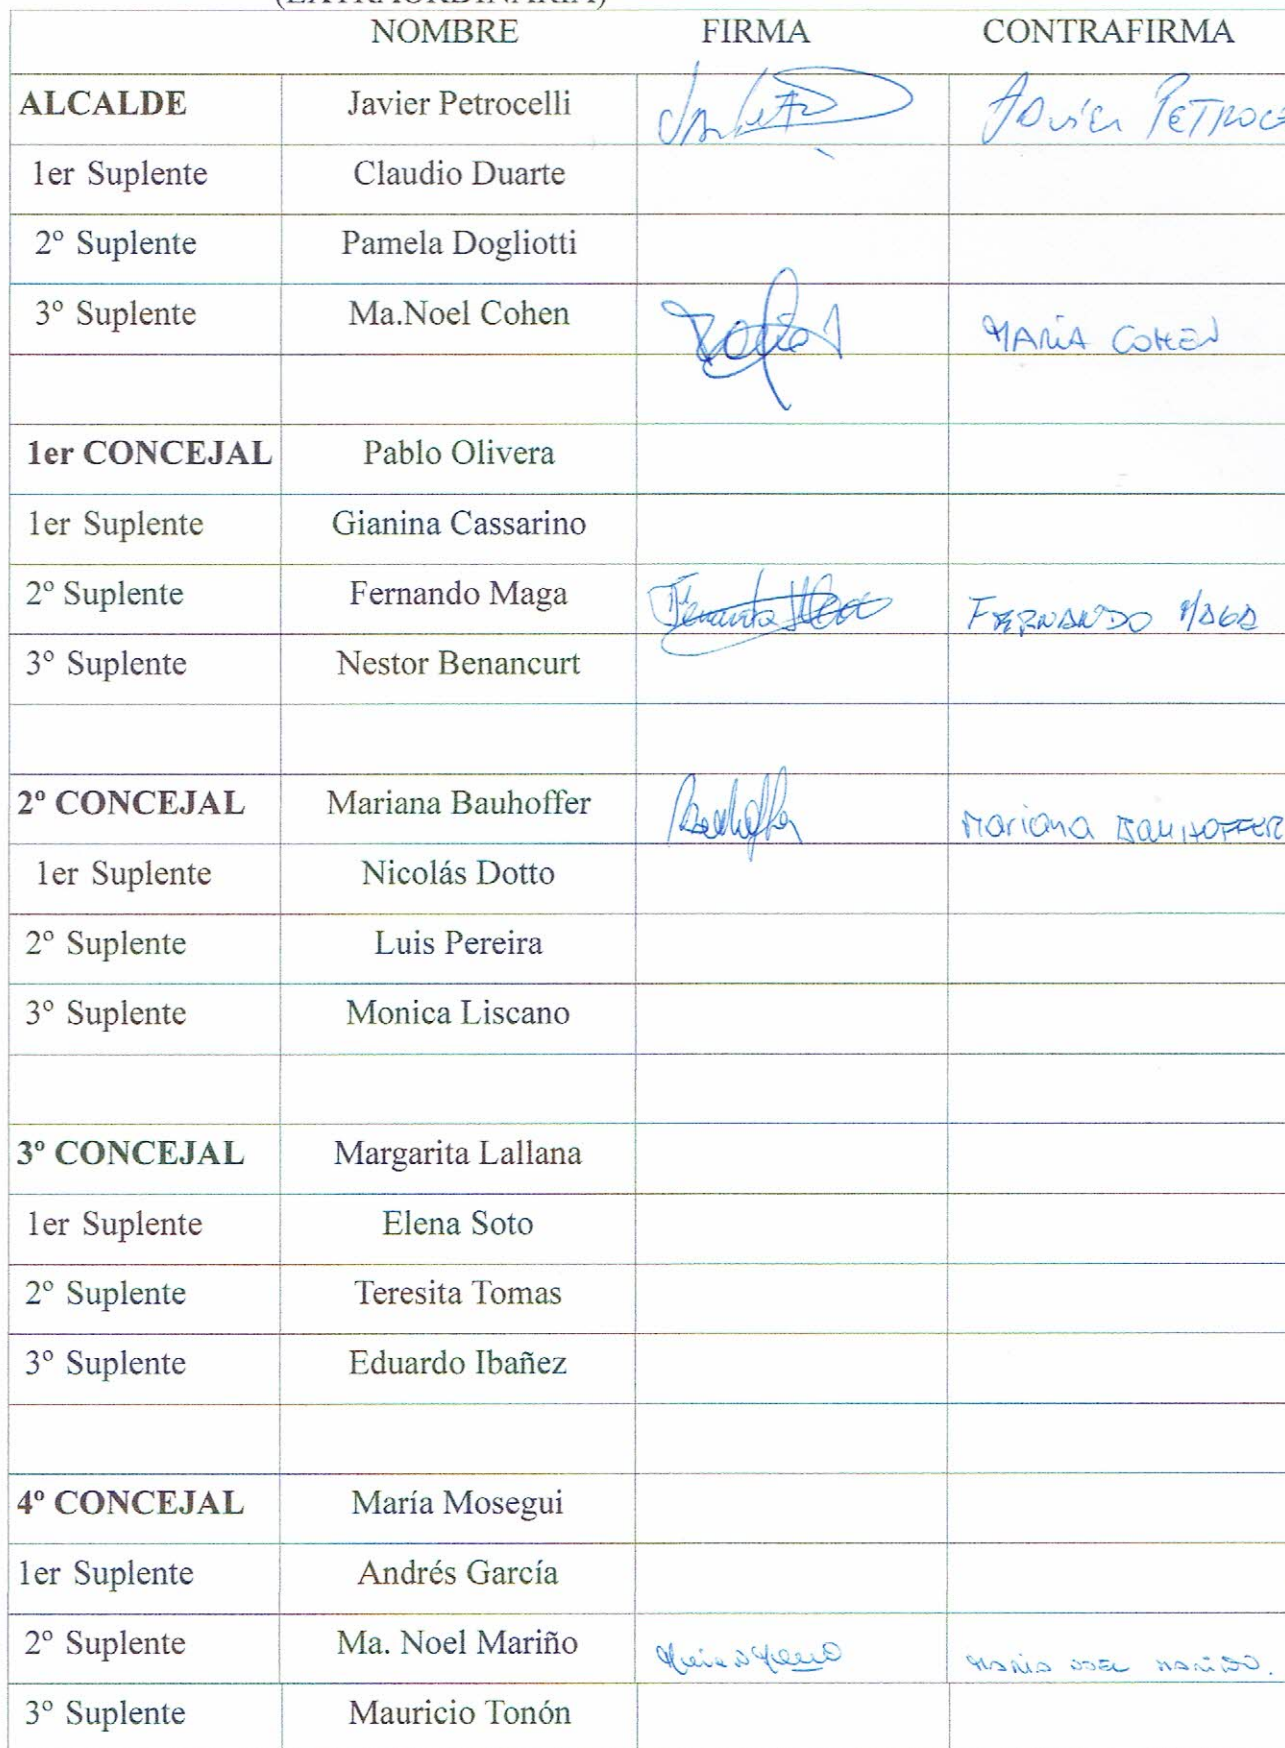 (EXTRAORDINARIA)
NOMBRE FIRMA CONTRAFIRMA
ALCALDE Javier Petrocelli Javier PETROCE
1er Suplente Claudio Duarte
2º Suplente Pamela Dogliotti
3º Suplente Ma.Noel Cohen MARIA COHEN
1er CONCEJAL Pablo Olivera
1er Suplente Gianina Cassarino
2º Suplente Fernando Maga FERNANDO MAGA
3º Suplente Nestor Benancurt
2º CONCEJAL Mariana Bauhoffer Mariana BAUHOFFER
1er Suplente Nicolás Dotto
2º Suplente Luis Pereira
3º Suplente Monica Liscano
3º CONCEJAL Margarita Lallana
1er Suplente Elena Soto
2º Suplente Teresita Tomas
3º Suplente Eduardo Ibañez
4º CONCEJAL María Mosegui
1er Suplente Andrés García
2º Suplente Ma. Noel Mariño MARIA NOEL MARIÑO.
3º Suplente Mauricio Tonón